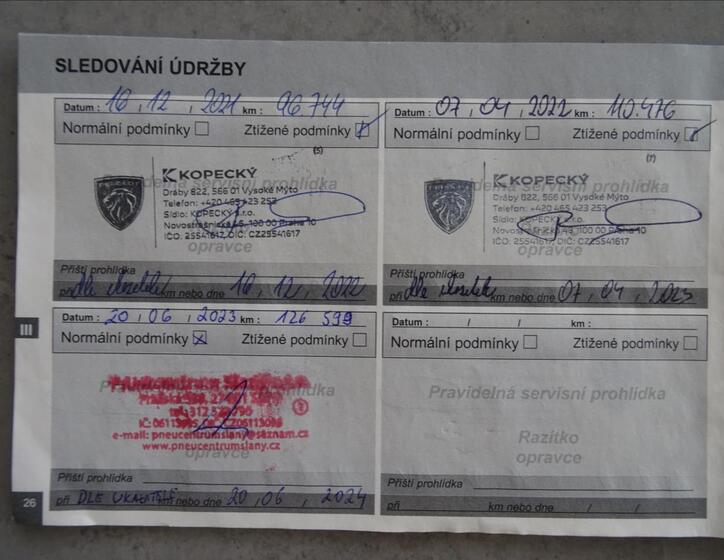 SLEDOVÁNÍ ÚDRŽBY
Datum : 16 , 12 , 2021 km : 96 744
Normální podmínky Ztížené podmínky
(5)
Pravidelná servisní prohlídka
PEUGEOT
KOPECKÝ
Dráby 822, 566 01 Vysoké Mýto
Telefon: +420 465 423 253
Sídlo: KOPECKÝ s.r.o.
Novostrašnická 46, 100 00 Praha 10
IČO: 25541617, DIČ: CZ25541617
opravce
Příští prohlídka
při dle km nebo dne 16 , 12 , 2022
Datum : 07 , 04 , 2022 km : 110.476
Normální podmínky Ztížené podmínky
(7)
Pravidelná servisní prohlídka
KOPECKÝ
Dráby 822, 566 01 Vysoké Mýto
Telefon: +420 465 423 253
Sídlo: KOPECKÝ s.r.o.
100 00 Praha 10
IČO: 25541617, DIČ: CZ25541617
opravce
Příští prohlídka
při dle km nebo dne 07 , 04 , 2023
III
Datum : 20 , 06 , 2023 km : 126 599
Normální podmínky Ztížené podmínky
e-mail: pneucentrumslany@seznam.cz
www.pneucentrumslany.cz
opravce
Příští prohlídka
při DLE UKAZATELE km nebo dne 20 , 06 , 2024
Datum : / / km :
Normální podmínky Ztížené podmínky
Pravidelná servisní prohlídka
Razítko
opravce
Příští prohlídka
při km nebo dne / /
26